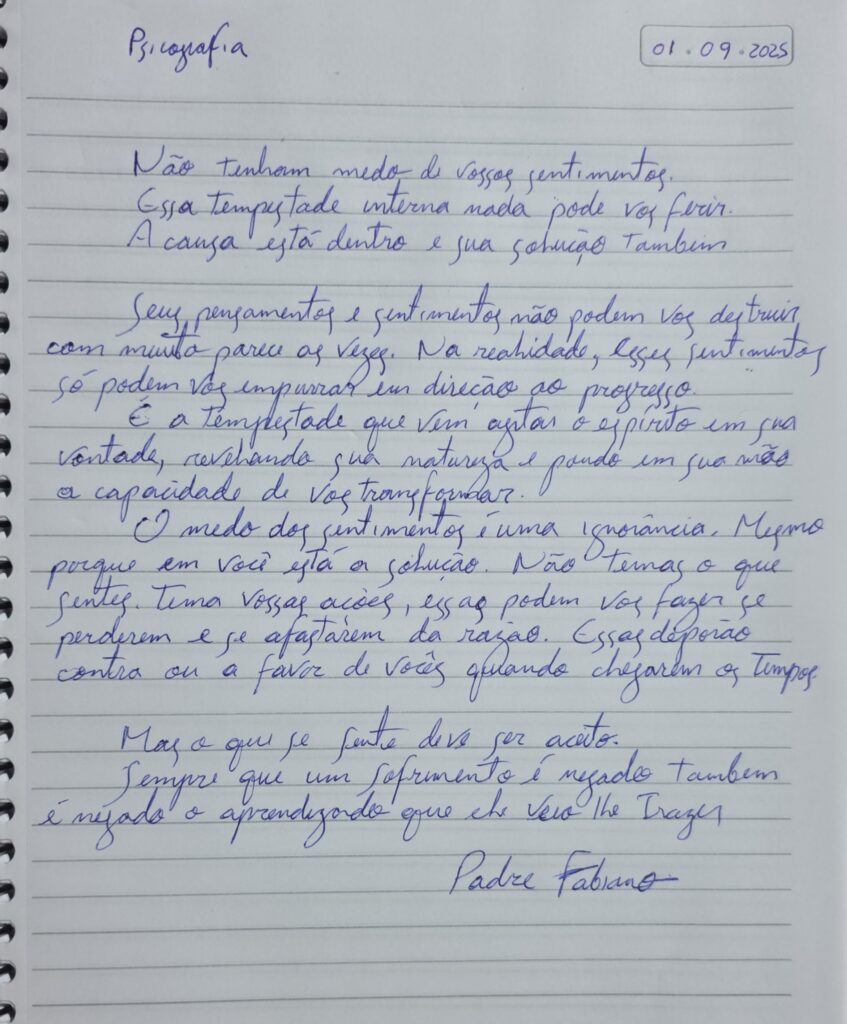 Psicografia
01.09.2025
Não tenham medo de vossos sentimentos.
Essa tempestade interna nada pode vos ferir.
A causa está dentro e sua solução tambem
Seus pensamentos e sentimentos não podem vos destruir
com muito parece as vezes. Na realidade, esses sentimentos
só podem vos empurrar em direção ao progresso.
É a tempestade que vem agitar o espírito em sua
vontade, revelando sua natureza e pondo em sua mão
a capacidade de vos transformar.
O medo dos sentimentos é uma ignorância. Mesmo
porque em você está a solução. Não temas o que
sentes. Tema vossas acões, essas podem vos fazer se
perderem e se afastarem da razão. Essas deporão
contra ou a favor de vocês quando chegarem os Tempos
Mas o que se sente deve ser aceito.
Sempre que um sofrimento é negado tambem
é negado o aprendizado que ele veio lhe Trazer
Padre Fabiano